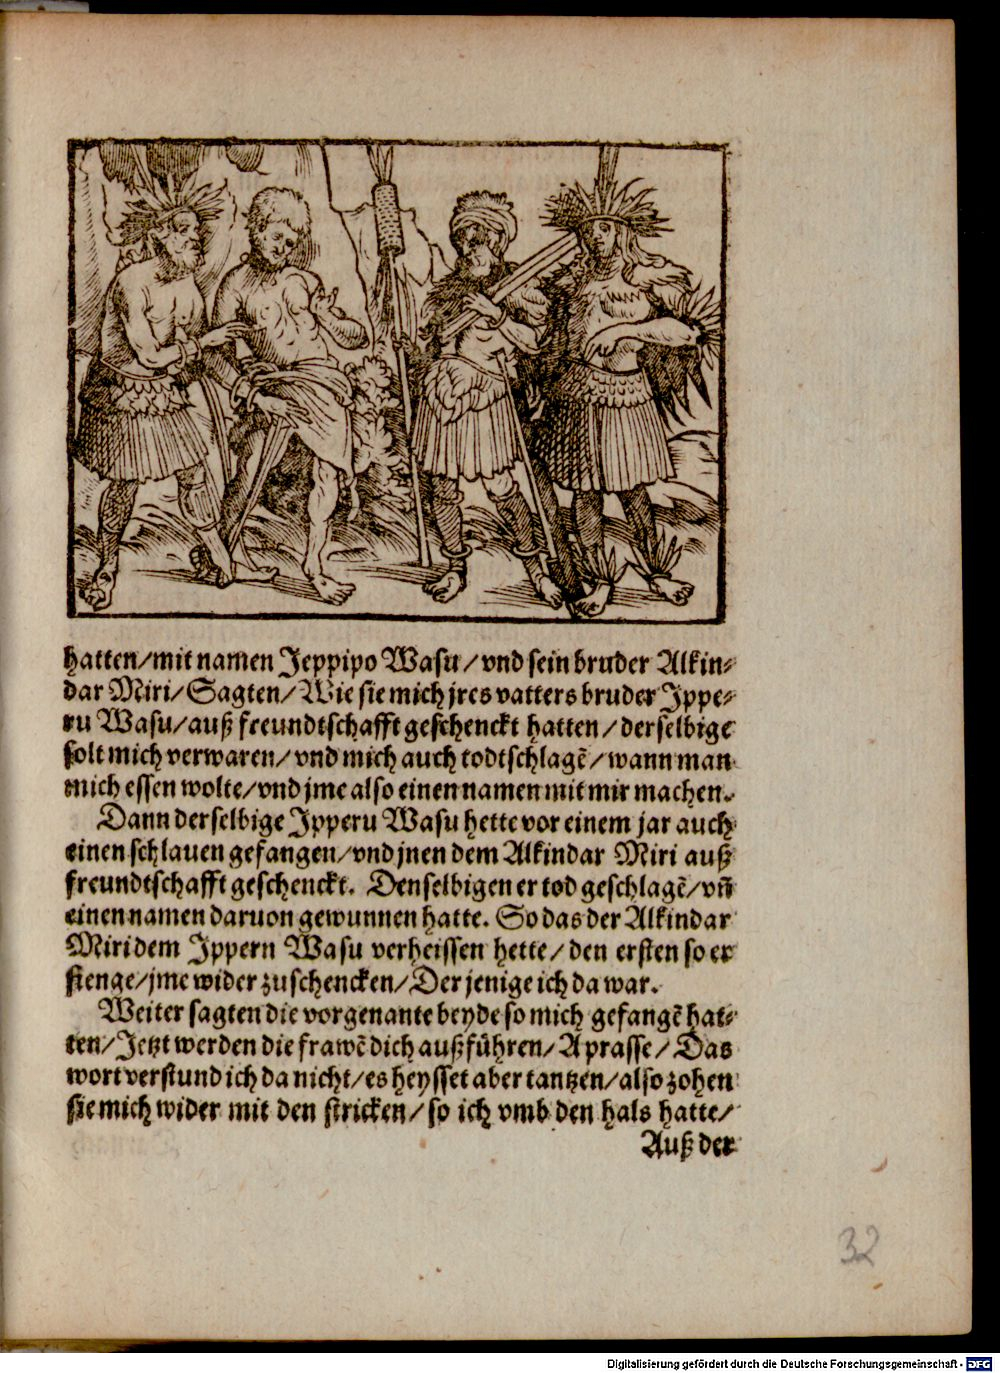 hatten/mit namen Jeppipo Wasu/vnd sein bruder Alkin⸗
dar Miri/Sagten/Wie sie mich jres vatters bruder Jppe⸗
ru Wasu/auß freundtschafft geschenckt hatten/derselbige
solt mich verwaren/vnd mich auch todtschlagē/wann man
mich essen wolte/vnd jme also einen namen mit mir machen.
Dann derselbige Jpperu Wasu hette vor einem jar auch
einen schlauen gefangen/vnd jnen dem Alkindar Miri auß
freundtschafft geschenckt. Denselbigen er tod geschlagē/vñ
einen namen daruon gewunnen hatte. So das der Alkindar
Miri dem Jppern Wasu verheissen hette/den ersten so er
fienge/jme wider zuschencken/Der jenige ich da war.
Weiter sagten die vorgenante beyde so mich gefangē hat⸗
ten/Jetzt werden die frawē dich außführen/Aprasse/Das
wort verstund ich da nicht/es heysset aber tantzen/also zohen
sie mich wider mit den stricken/so ich vmb den hals hatte/
Auß der
32
Digitalisierung gefördert durch die Deutsche Forschungsgemeinschaft - DFG